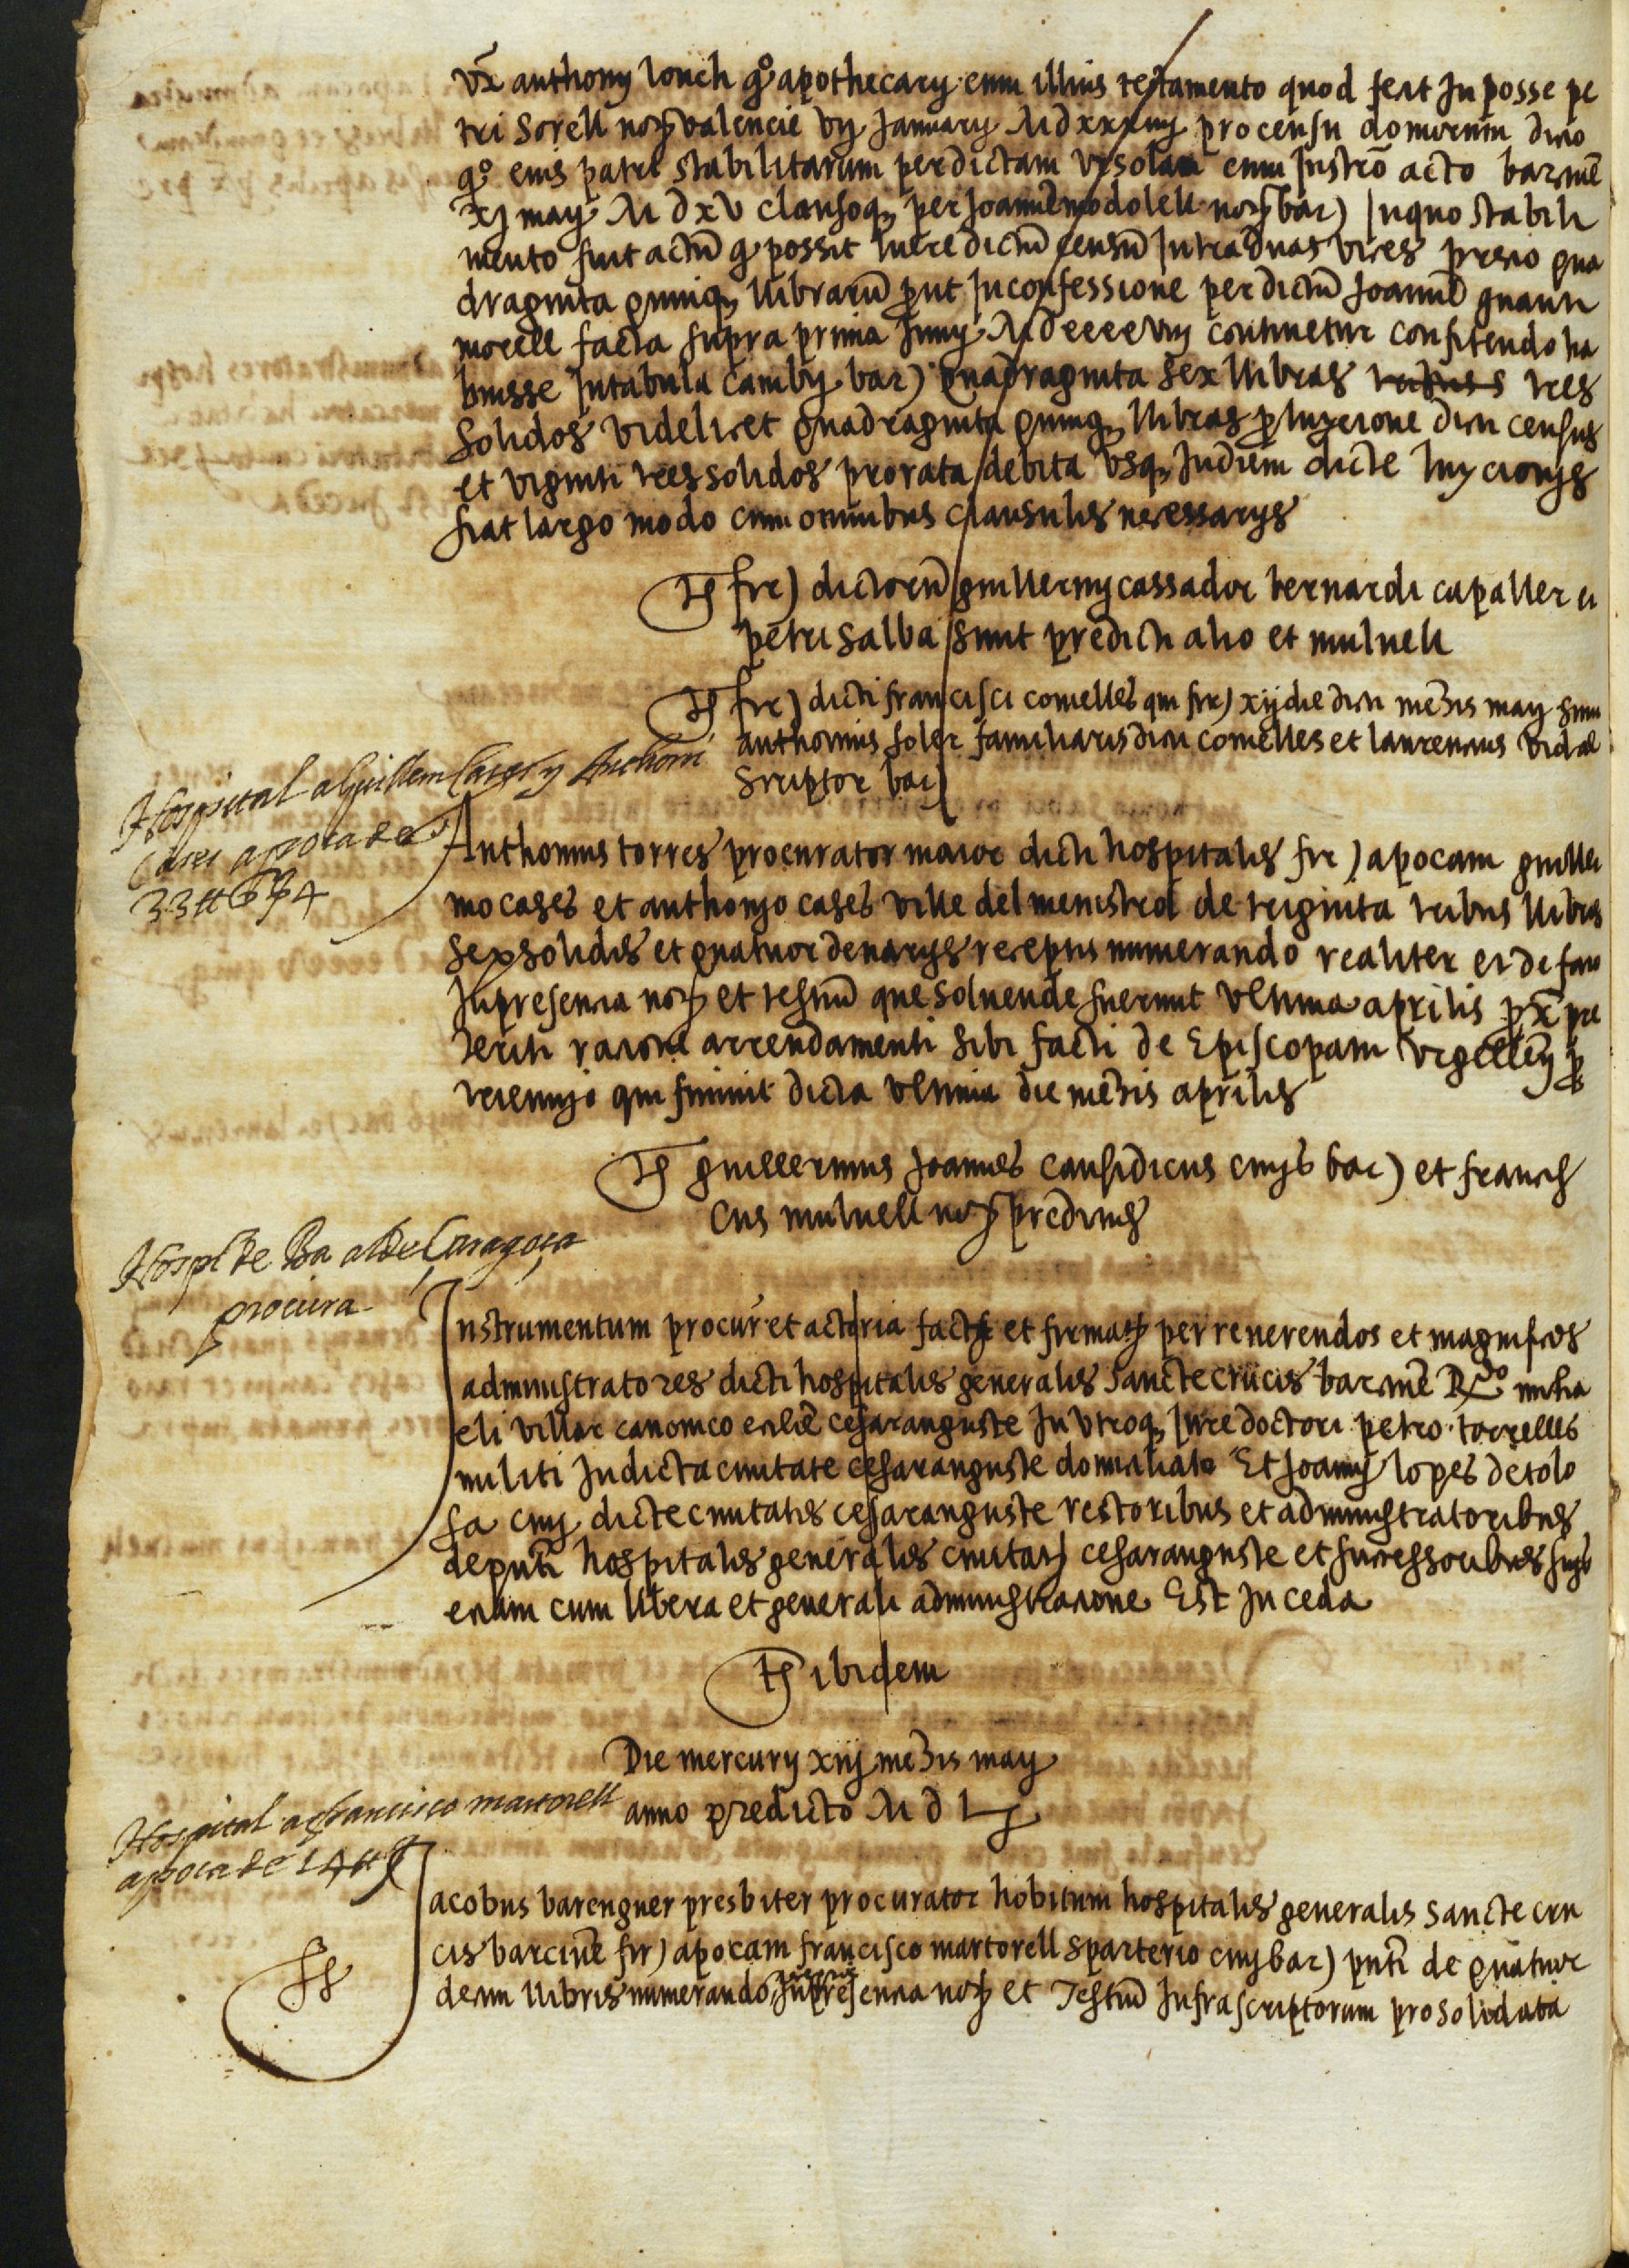 vx anthony lonch qº apothecary cum illius testamento quod fecit In posse pe
tri Sorell noy valencie vij January M d xxxiiij pro censu domorum dicto
qº eius patri stabilitarum per dictam vrsolam cum Instrō acto barcinē
xj may M d xv clausoq per Joannē modolell noy bar) In quo stabili
mento fuit actū q possit luere dictū censū Intra duas vices precio qua
draginta quinq llibrarū put In confessione per dictū Joannē
morell facta supra prima Juny continetur confitendo ha
buisse In tabula camby bar) quadraginta sex llibras tres
solidos videlicet quadraginta quinq llibras p luycione dicti census
et viginti tres solidos pro rata debita vsq In diem dicte luycionis
fiat largo modo cum omnibus clausulis necessarys
Ts fir) dictorū guillermy cassador bernardi capaller et
petri salba sunt predicti alio et mulnell
Ts fir) dicti francisci comelles qui fir) xij die dicti mensis may sunt
anthonius soler familiaris dicti comelles et laurencius vidal
scriptor bar)
Hospital a Guillem Cases y Anthoni
Cases apoca de
33 ll 6 s 4
Anthonius torres procurator maior dicti hospitalis fir) apocam guiller
mo cases et anthonio cases ville del menistrol de triginta tribus llibris
sex solidis et quatuor denarys receptis numerando realiter et de facto
In presencia noy et testiū que soluende fuerunt vltima aprilis px pre
teriti racione arrendamenti sibi facti de Episcopatu vrgellen p
triennio qui finiuit dicta vltima die mensis aprilis
Ts guillermus Joannes causidicus ciuis bar) et francis
cus mulnell noy predictus
Hospl de Ba al de Caragoça
procura
Instrumentum procur et actoria facty et firmaty per reuerendos et magnificos
administratores dicti hospitalis generalis sancte crucis barcinē Rdo micha
eli villar canonico ecclie cesarauguste In vtroq Jure doctori petro torrelles
militi In dicta ciuitate cesarauguste domiciliato Et Joanny lopes de tolo
sa ciuj dicte ciuitatis cesarauguste rectoribus et administratoribus
deputi hospitalis generalis ciuitaty cesarauguste et successoribus suys
eciam cum libera et generali administracione Est In ceda
Ts ibidem
Die mercury xiij mensis may
anno predicto M d Lj
Hospital a francisco martorell
apoca de 14 ll
Jacobus barenguer presbiter procurator hobituum hospitalis generalis sancte cru
cis barcinē fir) apocam francisco martorell sparterio ciuj bar) pnti de quatuor
decim llibris numerando In presencia noy et Testiū Infrascriptorum pro solidata